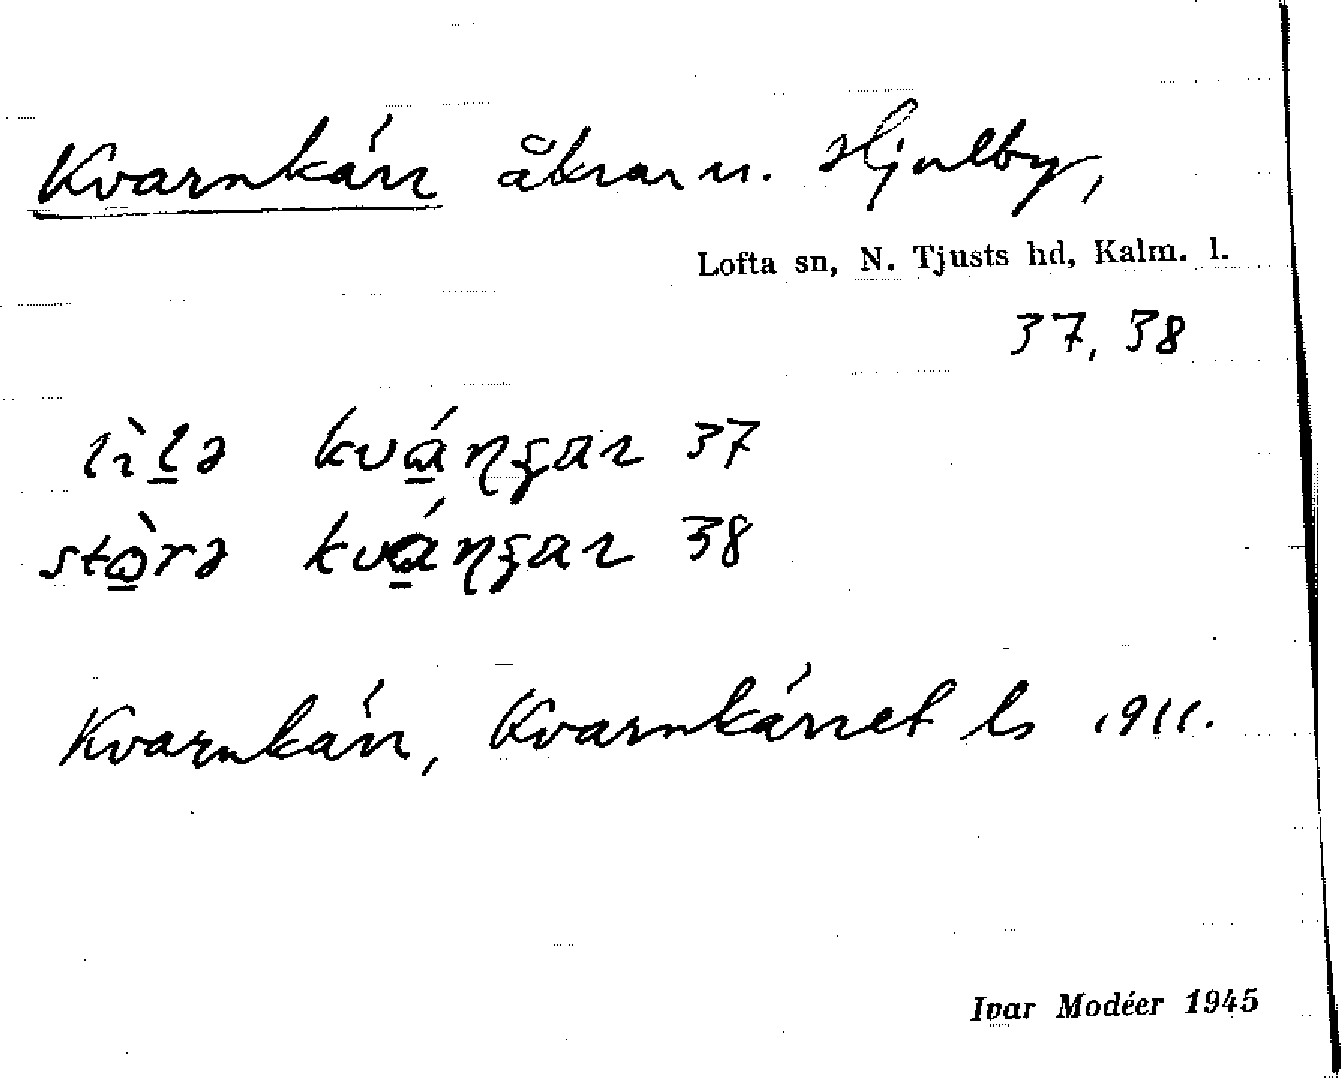 Kvarnkärr åkrar u. Hjulby,
Lofta sn, N. Tjusts hd, Kalm. l.
37, 38
lìlə kvɑ́ɳʒar 37
stɷ̀rə kvɑ́ɳʒar 38
Kvarnkärr, Kvarnkärret ls 1911.
Ivar Modéer 1945